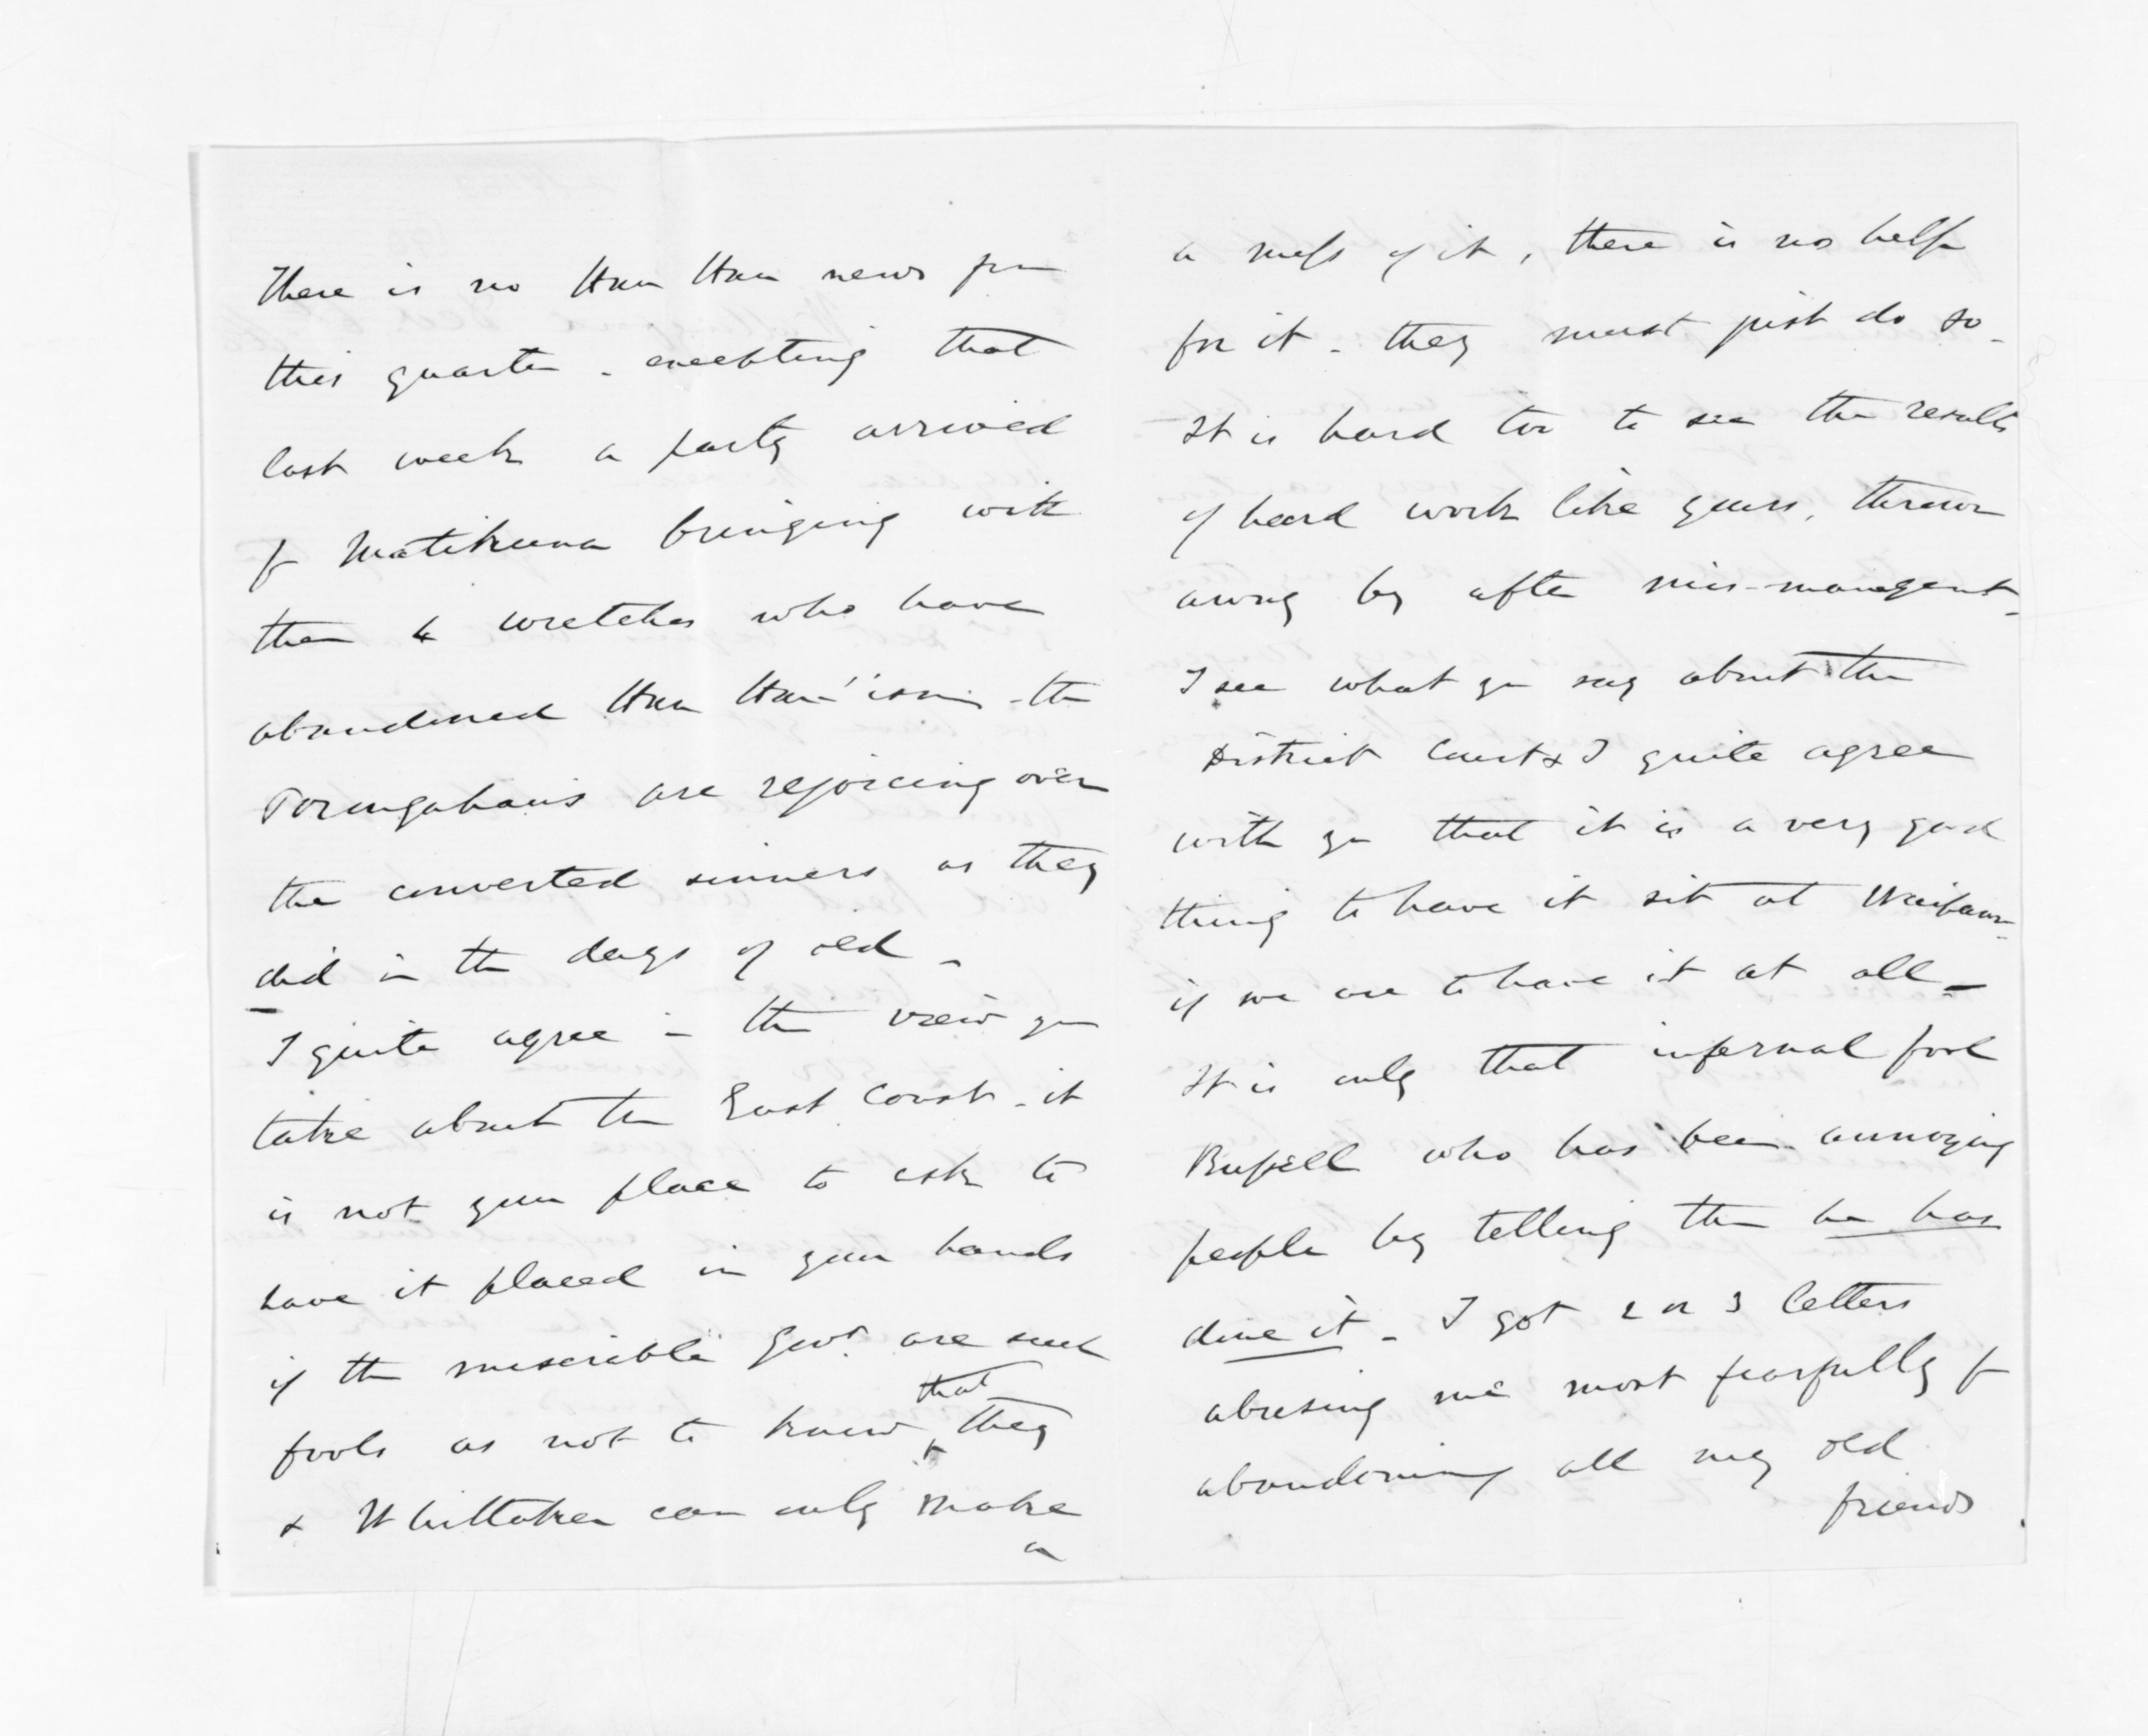 There is no Hau Hau news from
this quarter - excepting that
last week a party arrived
fr Matikuna bringing with
them 4 wretches who have
abandoned Hau Hau'ism - the
Porangahaus are rejoicing over
the converted sinners as they
did in the days of old -
I quite agree in the view you
take about the East Coast - it
is not your place to ask to
have it placed in your hands
if the miserable Govt. are such
fools as not to know that they
& Whittaker can only make
a
a mess of it, there is no help
for it - they must just do so -
It is hard too to see the results
of hard work like yours, thrown
away by after mis-managemt -
I see what you say about the
District Court & I quite agree
with you that it is a very good
thing to have it sit at Waipawa -
if we are to have it at all -
It is only that infernal fool
Russell who has been annoying
people by telling them he has
done it - I got 2 or 3 letters
abusing me most fearfully for
abandoning all my old
friends